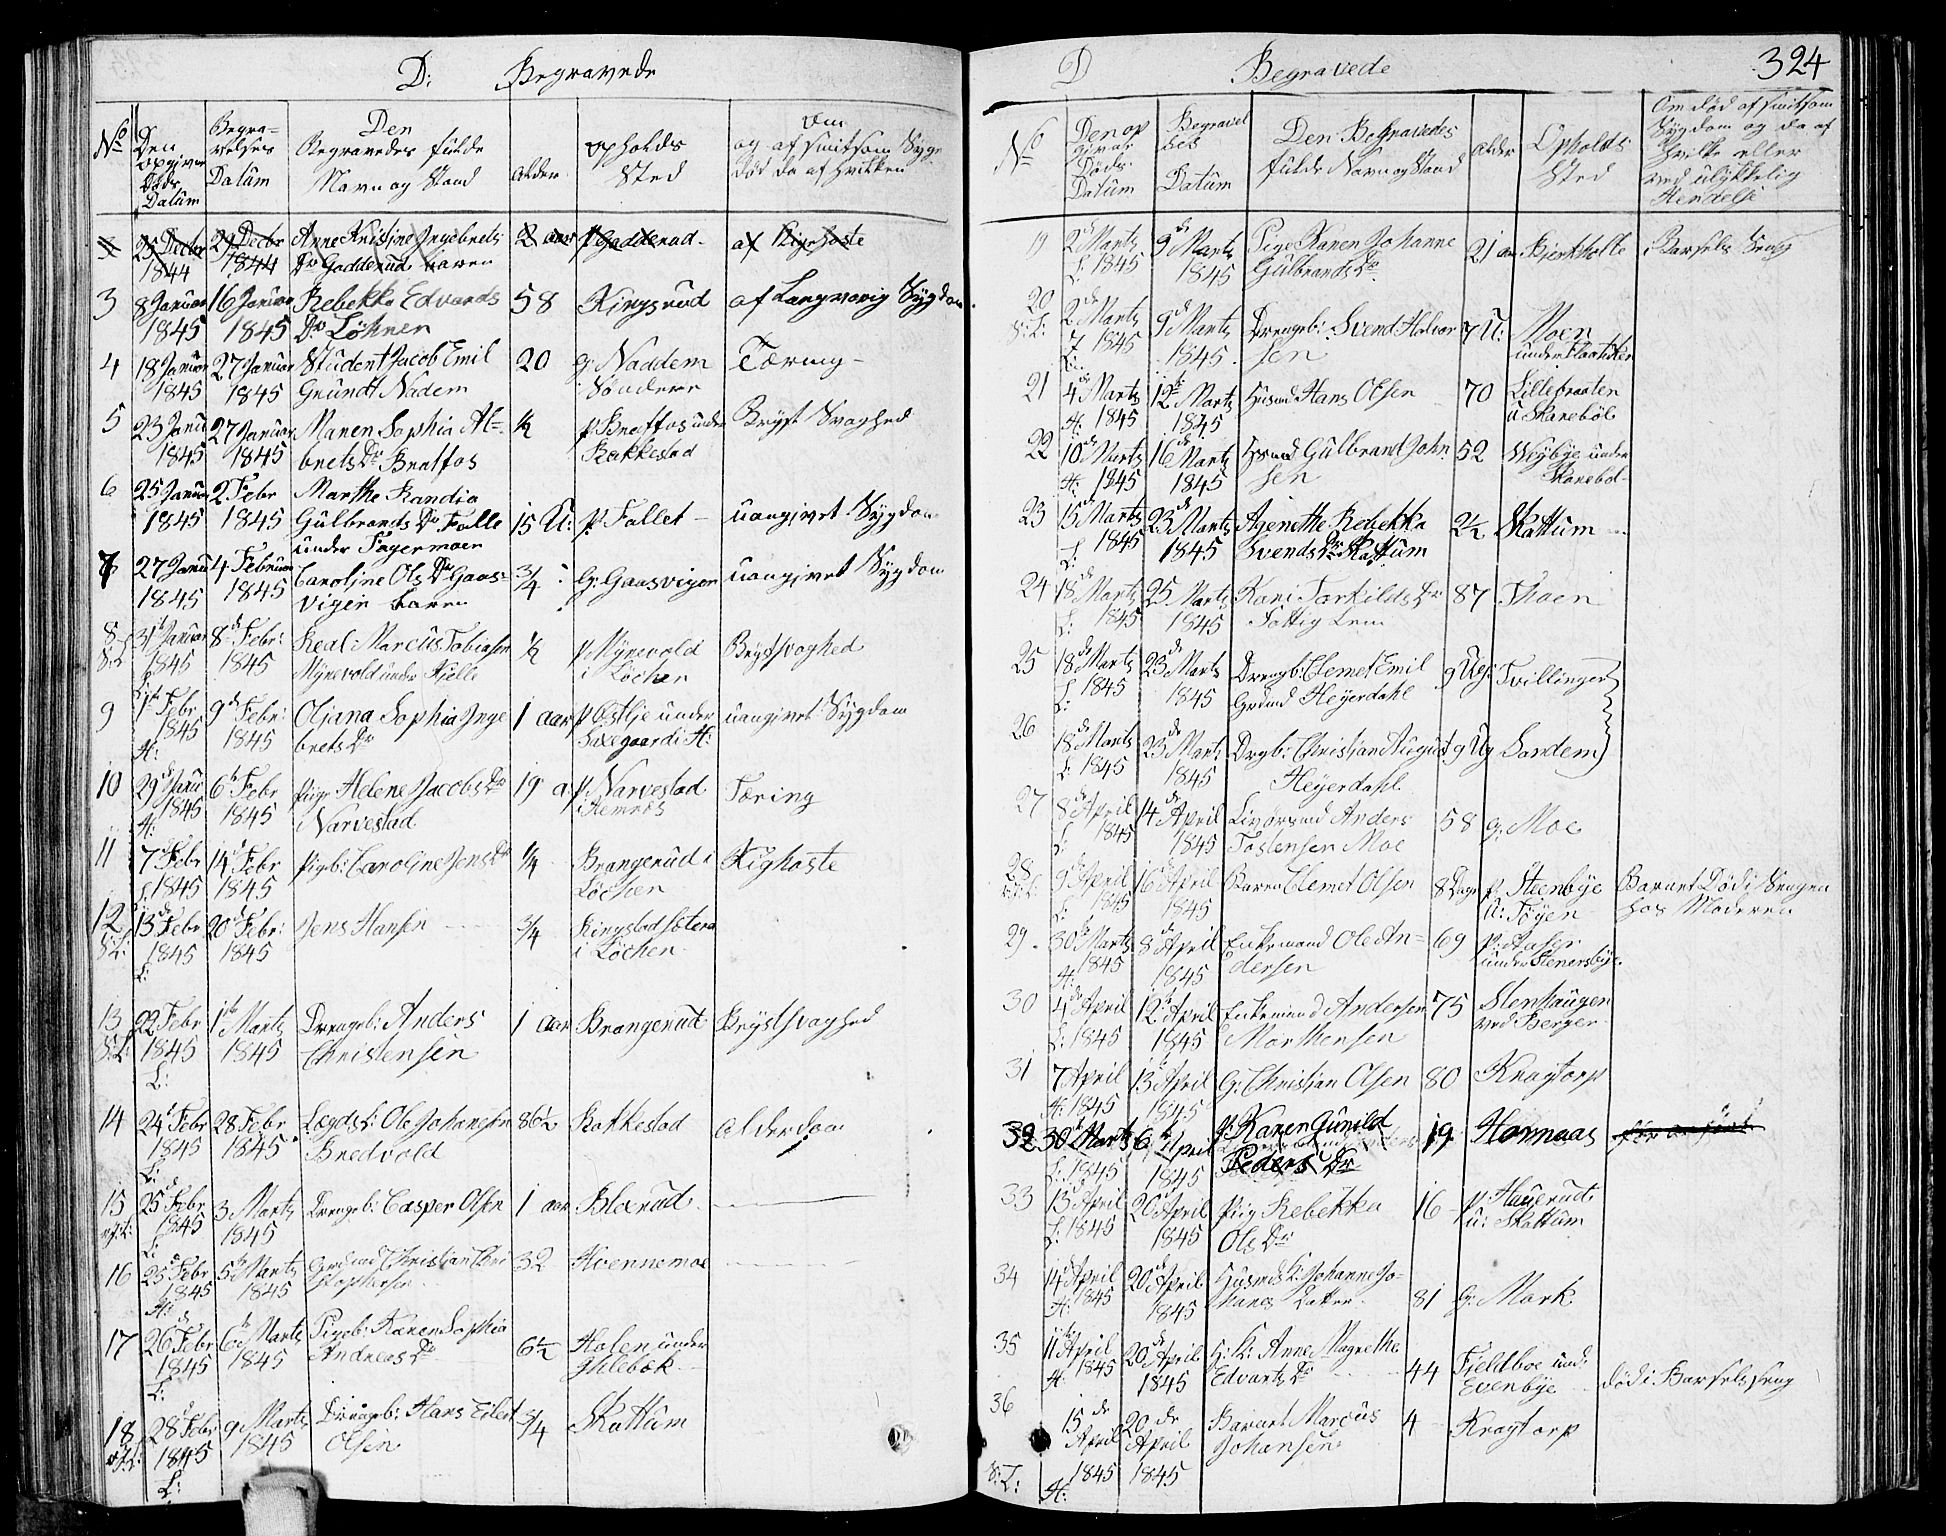 D: Begravede
No
Den opgivne Døds Datum
Begravelses Datum
Den Begravedes fulde Navn og Stand
Alder
Opholds Sted
Om og af smitsom Syge død da af hvilken
25 Decbr 1844 29 Decbr 1844 Anne Kristine Ingebrets Dr Gadderud barn 2 aar p Gadderud af Kighoste
3 8 Januar 1845 16 Januar 1845 Rebekka Edvards Dr Løknen 58 Ringsrud af Langvarig Sygdom
4 18 Januar 1845 27 Januar 1845 Student Jacob Emil Grundt Nadem 20 g: Naddem Søndere Tæring
5 23 Janu 1845 27 Januar 1845 Maren Sophia Al= brets Dr Bratfos ½ p Bratfos under Rakkestad Bryst Svaghed
6 25 Januar 1845 2 Febr 1845 Marthe Randia Gulbrands Dr Falle under Fagermoen 15 U: p. Fallet uangivet Sygdom
7 27 Janu 1845 4 Februar 1845 Caroline Ols Dr Gaas= vigen barn ¾ G: Gaasvigen uangivet Sygdom
8 31 Januar 1845 8de Febr: 1845 Marcus Tobiasen Myrevold under Hjelle ½ p Myrevold i Løchen Brystsvaghed
9 1 Febr 1845 9de Febr: 1845 Oljana Sophia Inge brets Dr 1 aar p Østlje under H: uangivet Sygdom
10 29 Janu 1845 H: 6te Febr 1845 pige Helene Jacobs Dr Narvestad 19 a p Narvestad i Hemnes Tæring
11 7 Febr 1845 14de Febr 1845 pigeb: Caroline Jens Dr ¼ Brangerud i Løchen Kighoste
12 13de Febr 1845 L: 20de Febr: 1845 Jens Hansen ¾ Ringstad i Løchen
13 22 Febr 1845 L: 1te Martz 1845 Drengeb: Anders Christensen 1 aar Brangerud Brystsvaghed
14 24 Febr 1845 L: 28 Febr 1845 Lægdsl: Ole Johansen Bredvold 86½ Rakkestad Alderdom
15 25de Febr 1845 L: 3 Martz 1845 Drengeb: Casper Olsen 1 aar Blærud
16 25de Febr 1845 H: 5te Martz 1845 Christian Chri stophersen 32 Hvennemoe
17 26de Febr 1845 L: 6te Martz 1845 Pigeb: Karen Sophia Andreas Dr 6½ Holen under Ghlebæk
18 28de Febr 1845 L: 9 Martz 1845 Drengeb: Hans Eilert Olsen ¾ Skattum
D Begravede 324
No
Den op givne Døds Datum
Begravel ses Datum
Den Begravedes fulde Navn og Stand
Alder
Opholds Sted
Om død af smitsom Sygdom og da af hvilke eller ved ulykkelig Hendelse
19 2de Martz L: 1845 9de Martz 1845 Pige Karen Johanne Gulbrands Dr 21 aar Bjerkholte i Barsels Seng
20 2de Martz 1845 L: 9de Martz 1845 Drengeb: Svend Halvor sen 7 U: Moen under
21 4de Martz H: 1845 12te Martz 1845 Husmd Hans Olsen 70 Lillebraaten u Skanebøl
22 10de Martz H: 1845 16de Martz 1845 Husmd Gulbrand John sen 52 Nybye under Skanebøl
23 15de Martz L: 1845 23de Martz 1845 Agnethe Rebekka Svends Dr Skattum 2½ Skattum
24 18de Martz L: 1845 25 Martz 1845 Kari Torkilds Dr Fattig Lem 87 Thoen
25 18de Martz L: 1845 23de Martz 1845 Drengb: Clemet Emil Grund Heyerdahl 9 Ug: Tvillinger
26 18de Martz L: 1845 23de Martz 1845 Drgb: Christian August Heyerdahl 9 Ug Sandem
27 8de April L: 1845 14de April 1845 Anders Tostensen Moe 58 g: Moe
28 9de April L: 1845 16de April 1845 Barn Clemet Olsen 8 Dage p. Steenbye U: Tøyen Barnet Død i Sengen hos Moderen
29 30te Martz H: 1845 8de April 1845 Enkemand Ole An= dersen 69 under Stenersbye
30 4de April L: 1845 12te April 1845 Enkemand Andersen Marthensen 75 Stenhaugen ved Berger
31 7 April H: 1845 13de April 1845 G: Christian Olsen 80 Kragtorp
32 30te Martz L: 1845 6te April 1845 p: Karen Gunild Peders Dr 19 Hornaas
33 13de April L: 1845 20de April 1845 Pige Rebekka Ols Dr 16 p Haugerud u: Skattum
34 14de April H: 1845 20de April 1845 Husmds K: Johanne Jo= hannes Datter 81 g: Mork
35 11te April H: 1845 20de April 1845 H: K: Anne Magrethe Edvartz Dr 44 Fjeldboe und: Evenbye død i Barselsseng
36 15de April 1845 H: 20de April 1845 Barnet Marcus Johansen 4 Kragtorp